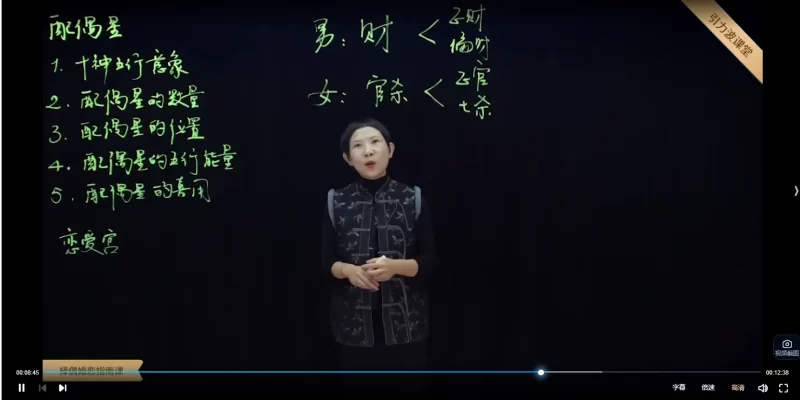 配偶星
1. 十种五行意象
2. 配偶星的数量
3. 配偶星的位置
4. 配偶星的五行能量
5. 配偶星的喜用
恋爱宫
男：财 < 正财
偏财
女：官杀 < 正官
七杀
引力波课堂
择偶婚恋指南课
视频截图
00:08:45
00:12:38
字幕
倍速
高清